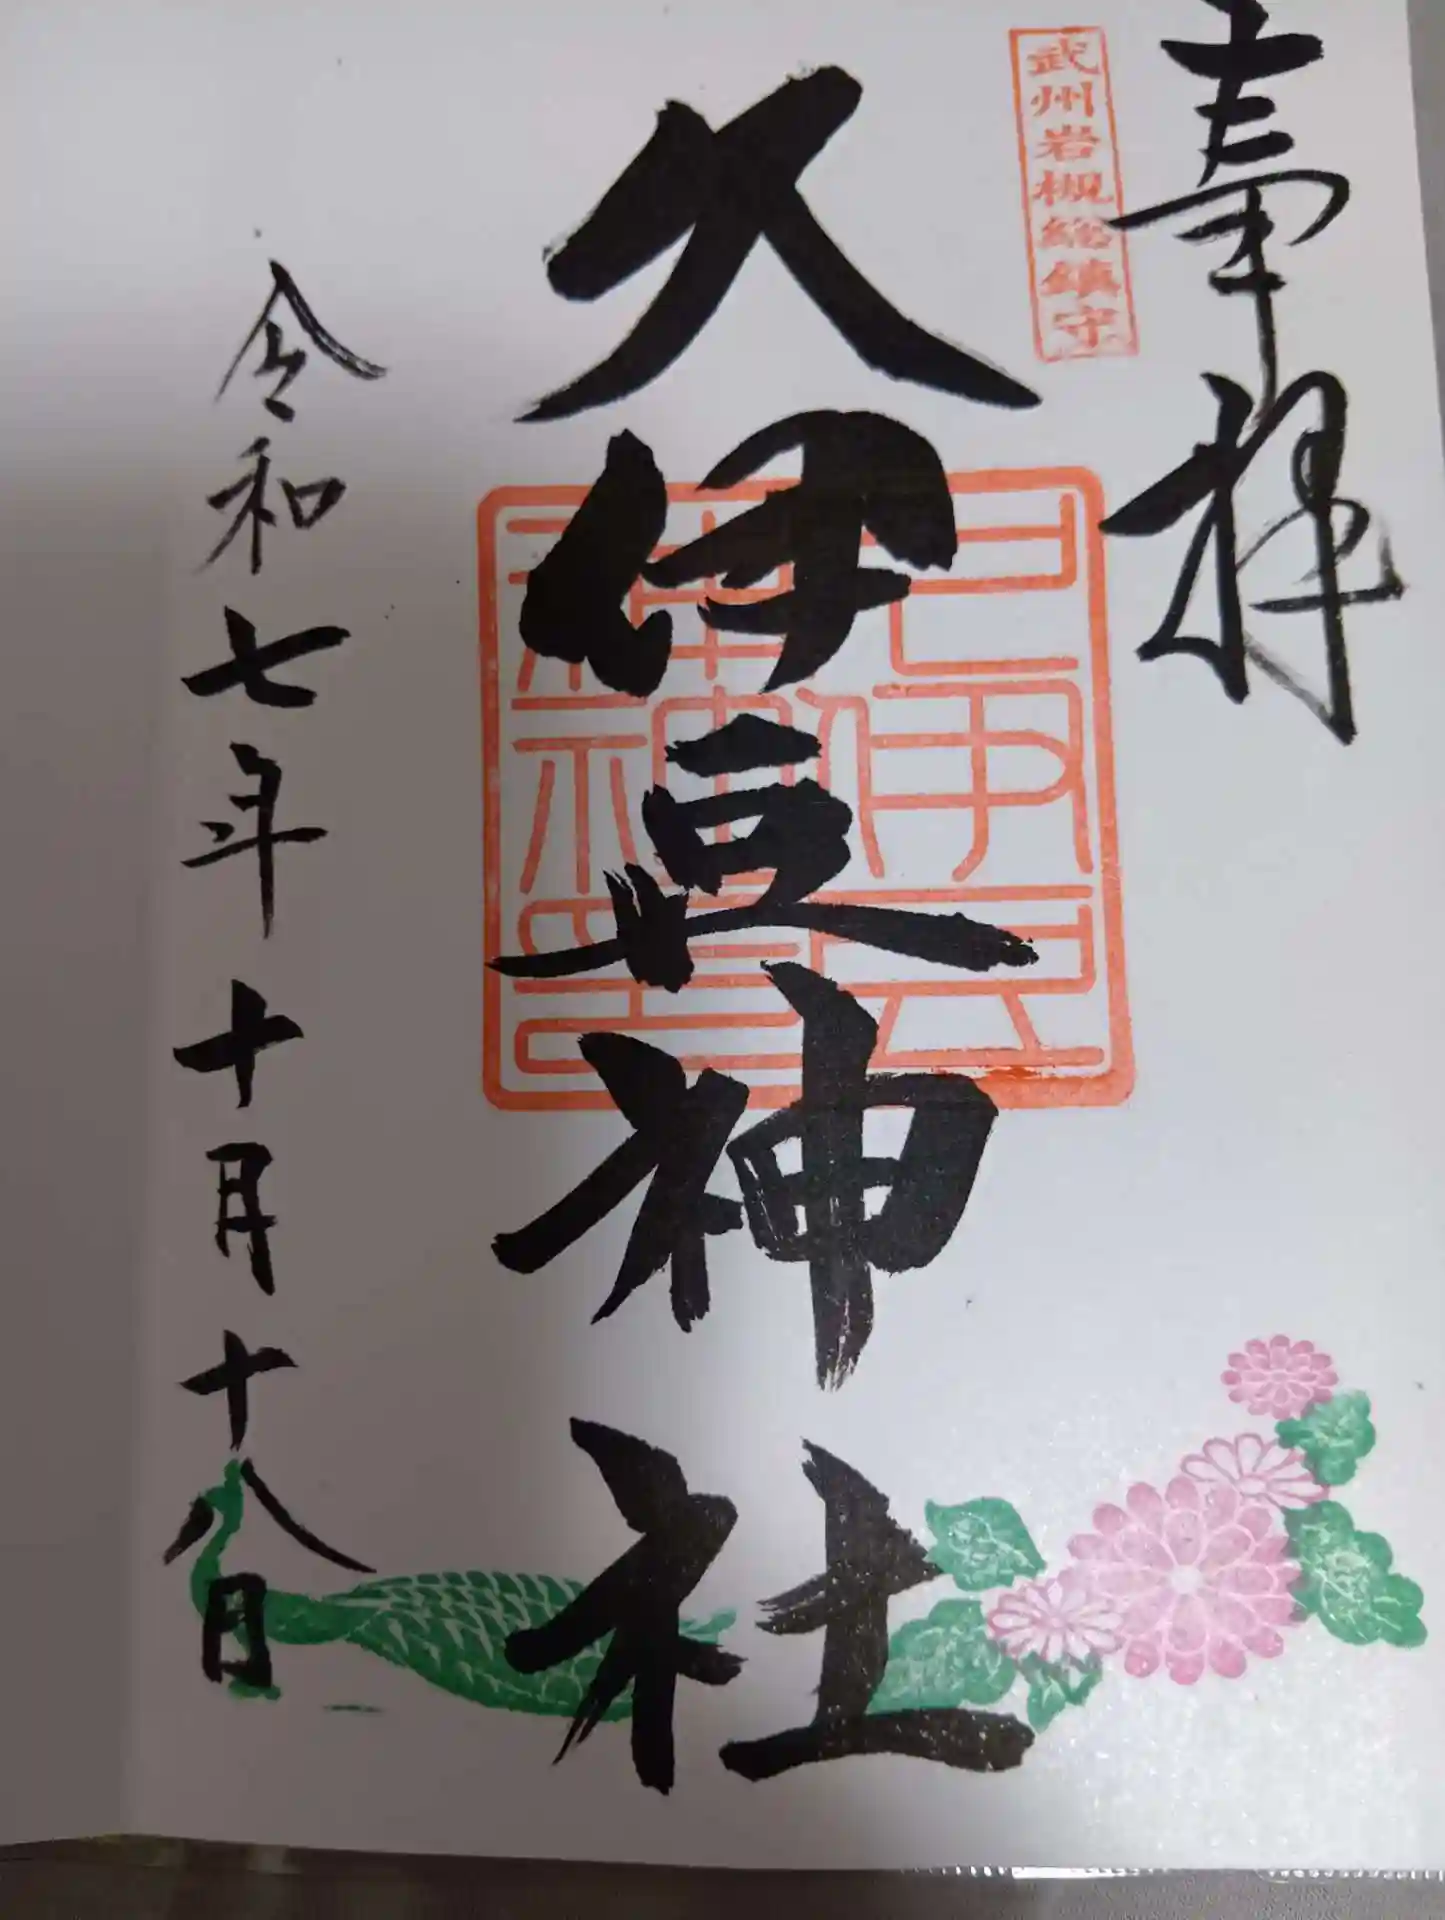 奉拝
武州岩槻総鎮守
久伊豆神社
令和七年十月十八日